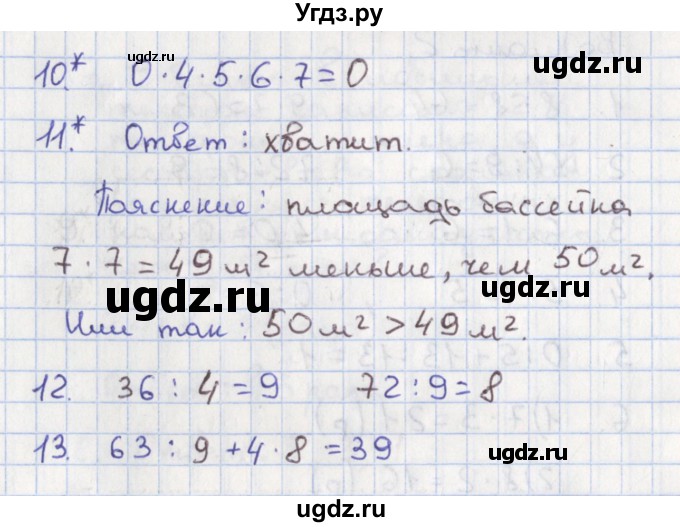 Угдз.ру
ugdz.ru
ugdz.ru
ugdz.ru
10.* 0·4·5·6·7=0
11.* Ответ: хватит.
Пояснение: площадь бассейна
7·7=49 м² меньше, чем 50 м².
ugdz.ru
ugdz.ru
Или так: 50 м² > 49 м².
12. 36:4=9 72:9=8
13. 63:9+4·8=39
ugdz.ru
ugdz.ru
ugdz.ru